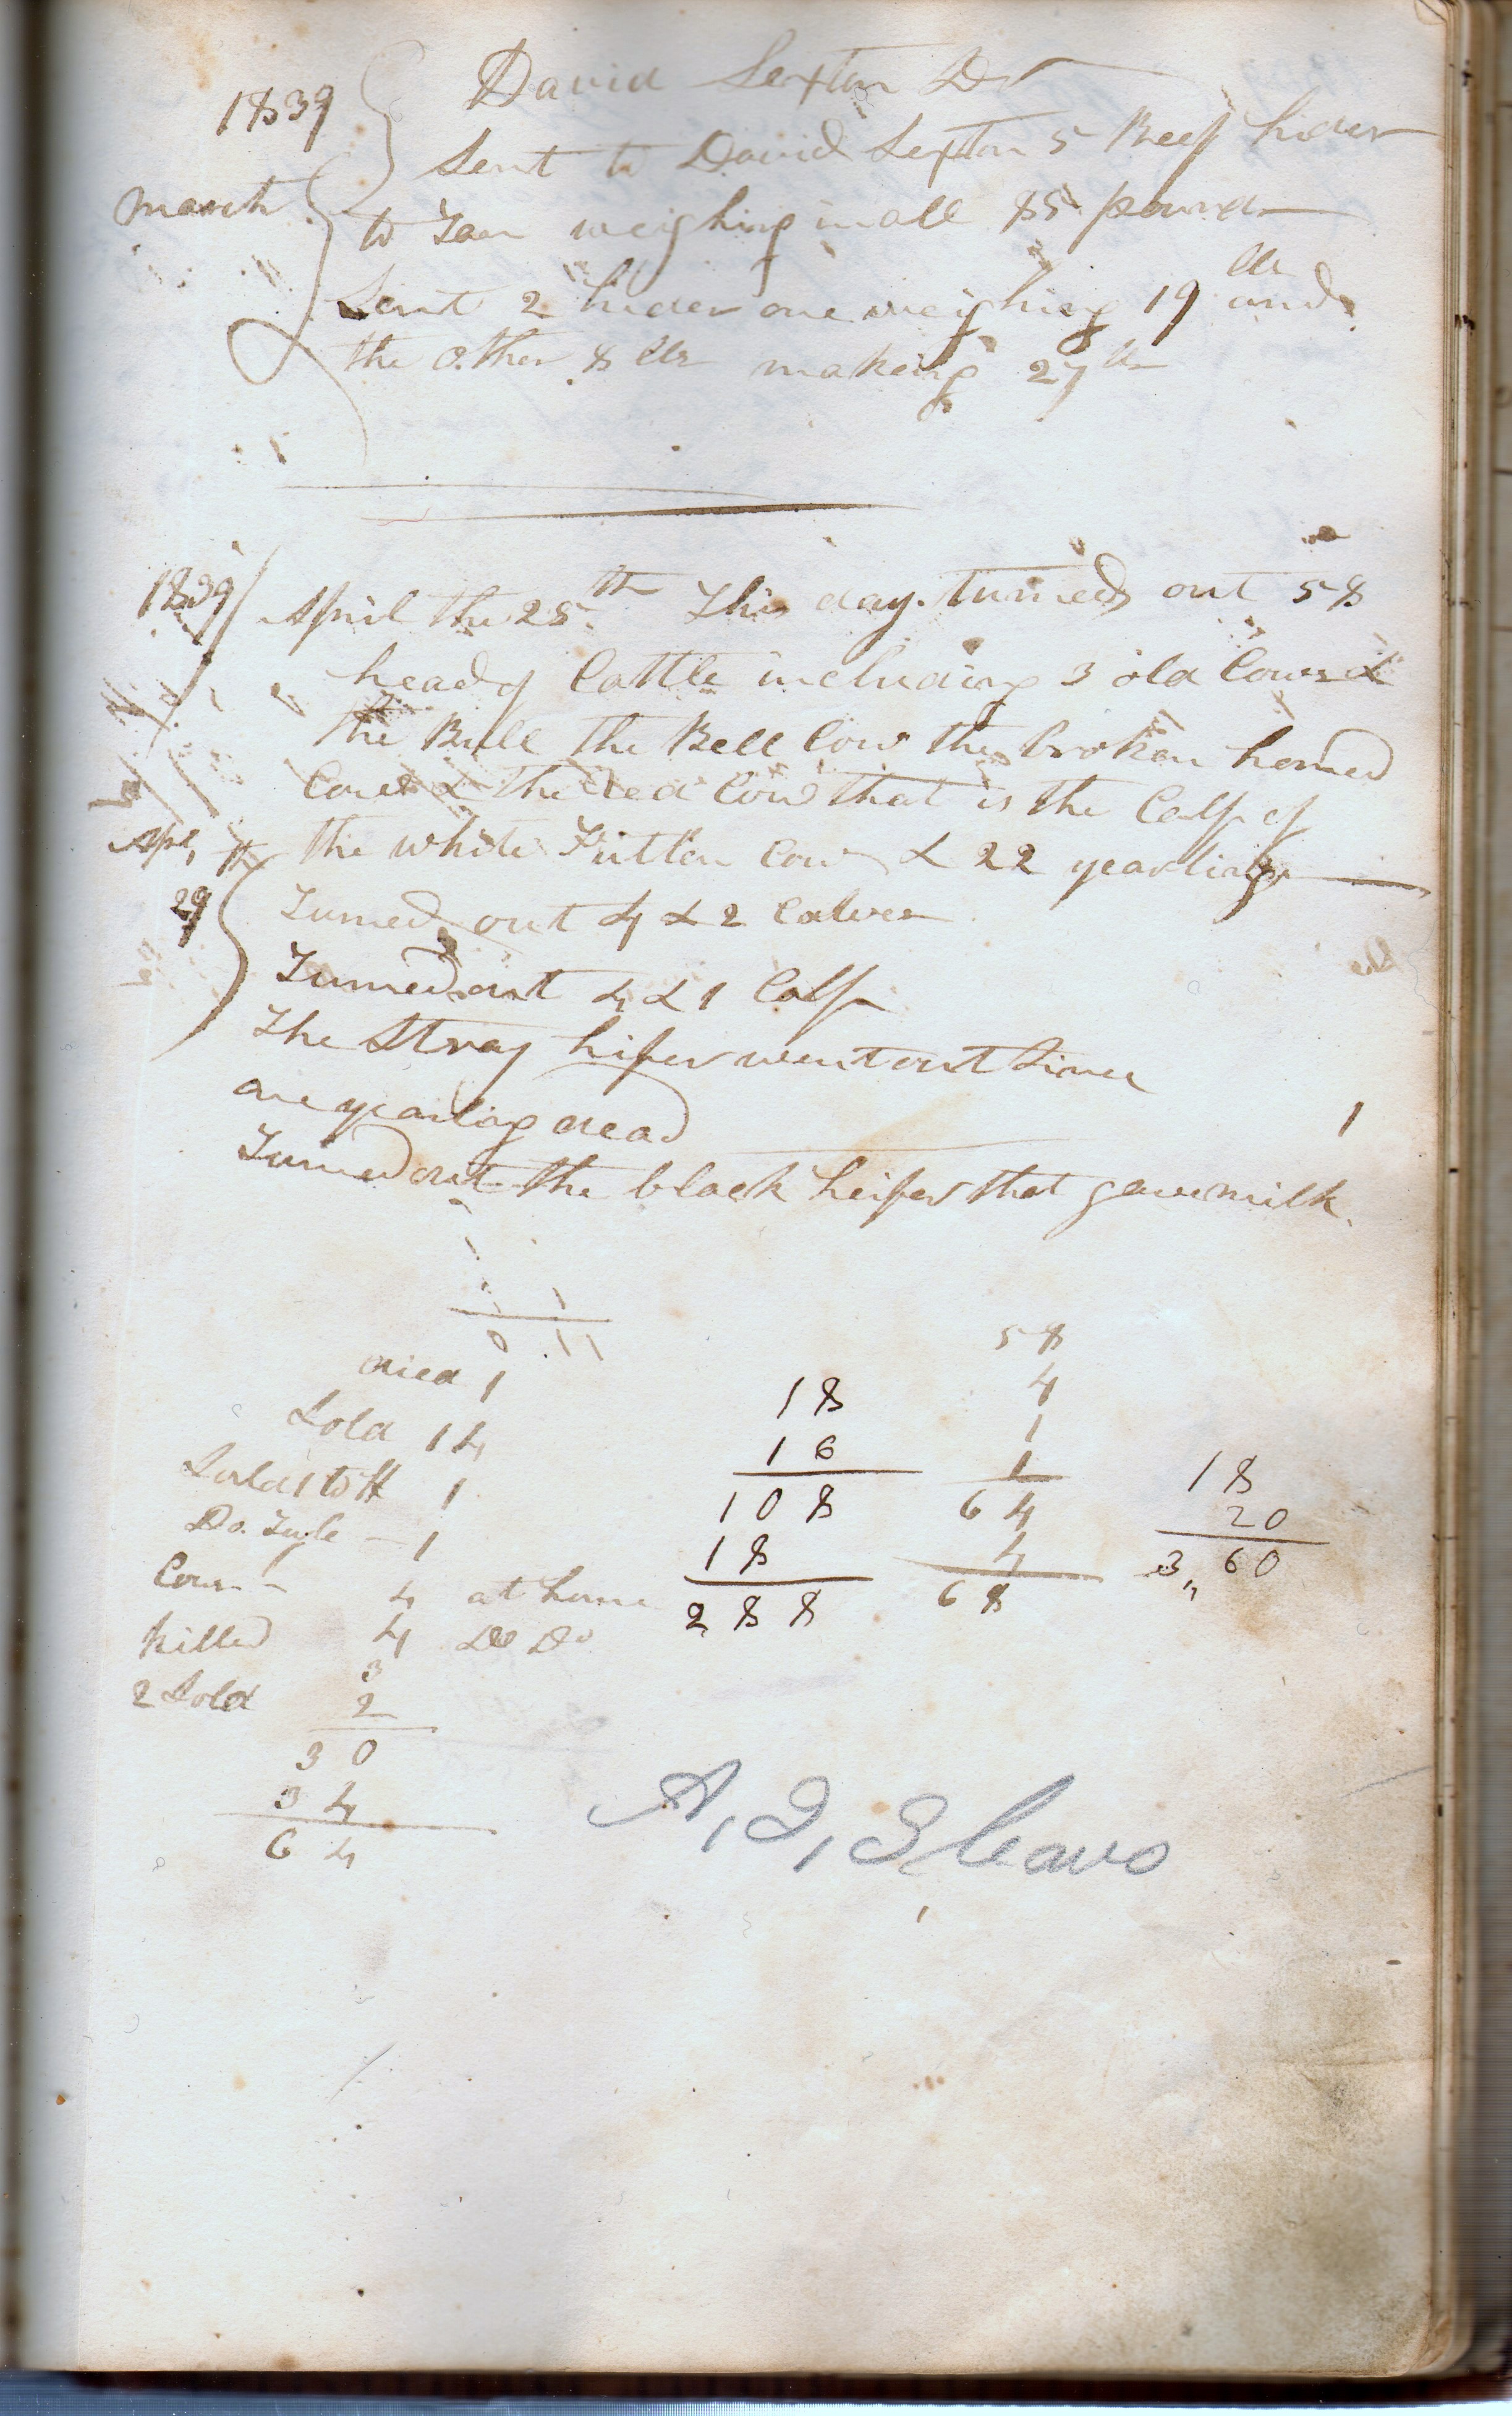 David Sexton Dr
1839
Sent to David Sexton 5 Beef hides
March
to Tan weighing in all 85 pounds
Sent 2 hides one weighing 19 lbs and
the other 8 lbs making 27 lbs
1839
April the 25th This day turned out 58
head of Cattle including 3 old Cows &
the Bull the Bell Cow the broken horned
Cow & the Red Cow that is the Calf of
Apl,
the white Cow & 22 yearlings
29
Turned out 4 & 2 Calves
Turned out 4 & 1 Calf
The Stray hifer went out Since
one yearling dead 1
Turned out the black heifer that gave milk.
0 11
died 1
Sold 14
Sold 1 to H 1
Do. 1
Cows 4 at home
killed 4 Do Do
3
2 Sold 2
30
34
64
18
16
108
18
288
58
4
1
1
64
4
68
18
20
3,,60
A, J, Sleavo